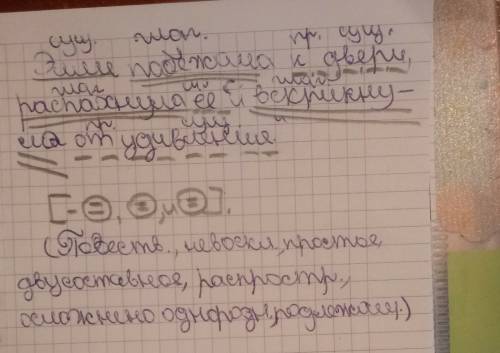 сущ. глаг. пр. сущ.
Элли подбежала к двери,
глаг. глаг.
распахнула её и вскрикну-
пр. сущ.
ла от удивления.
[- =, =, и =].
(Повеств., невоскл, простое,
двусоставное, распростр.,
осложнено однородн, подлежащ.)